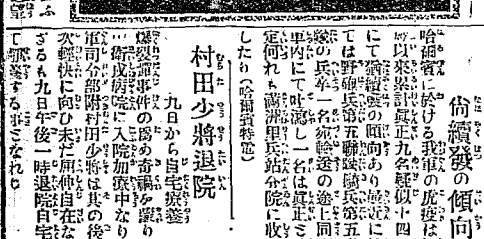 尙續發の傾向
哈爾賓に於ける我軍の虎疫は
以來累計眞正九名疑似十四
にて猶續發の傾向あり最近に
ては野砲兵第五聯隊騎兵第五
の兵卒一名宛輸送の途上同
車內にて吐瀉し一名は眞正
定何れも滿洲里兵站分院に收
したり(哈爾賓特電)
村田少將退院
九日から自宅療養
爆裂彈事件の爲め奇禍を蒙り
衛戍病院に入院加療中なり
軍司令部附村田少將は其の後
次輕快に向ひ未だ屈伸自在な
ざるも九日午後一時退院自宅
て療養する事となれり